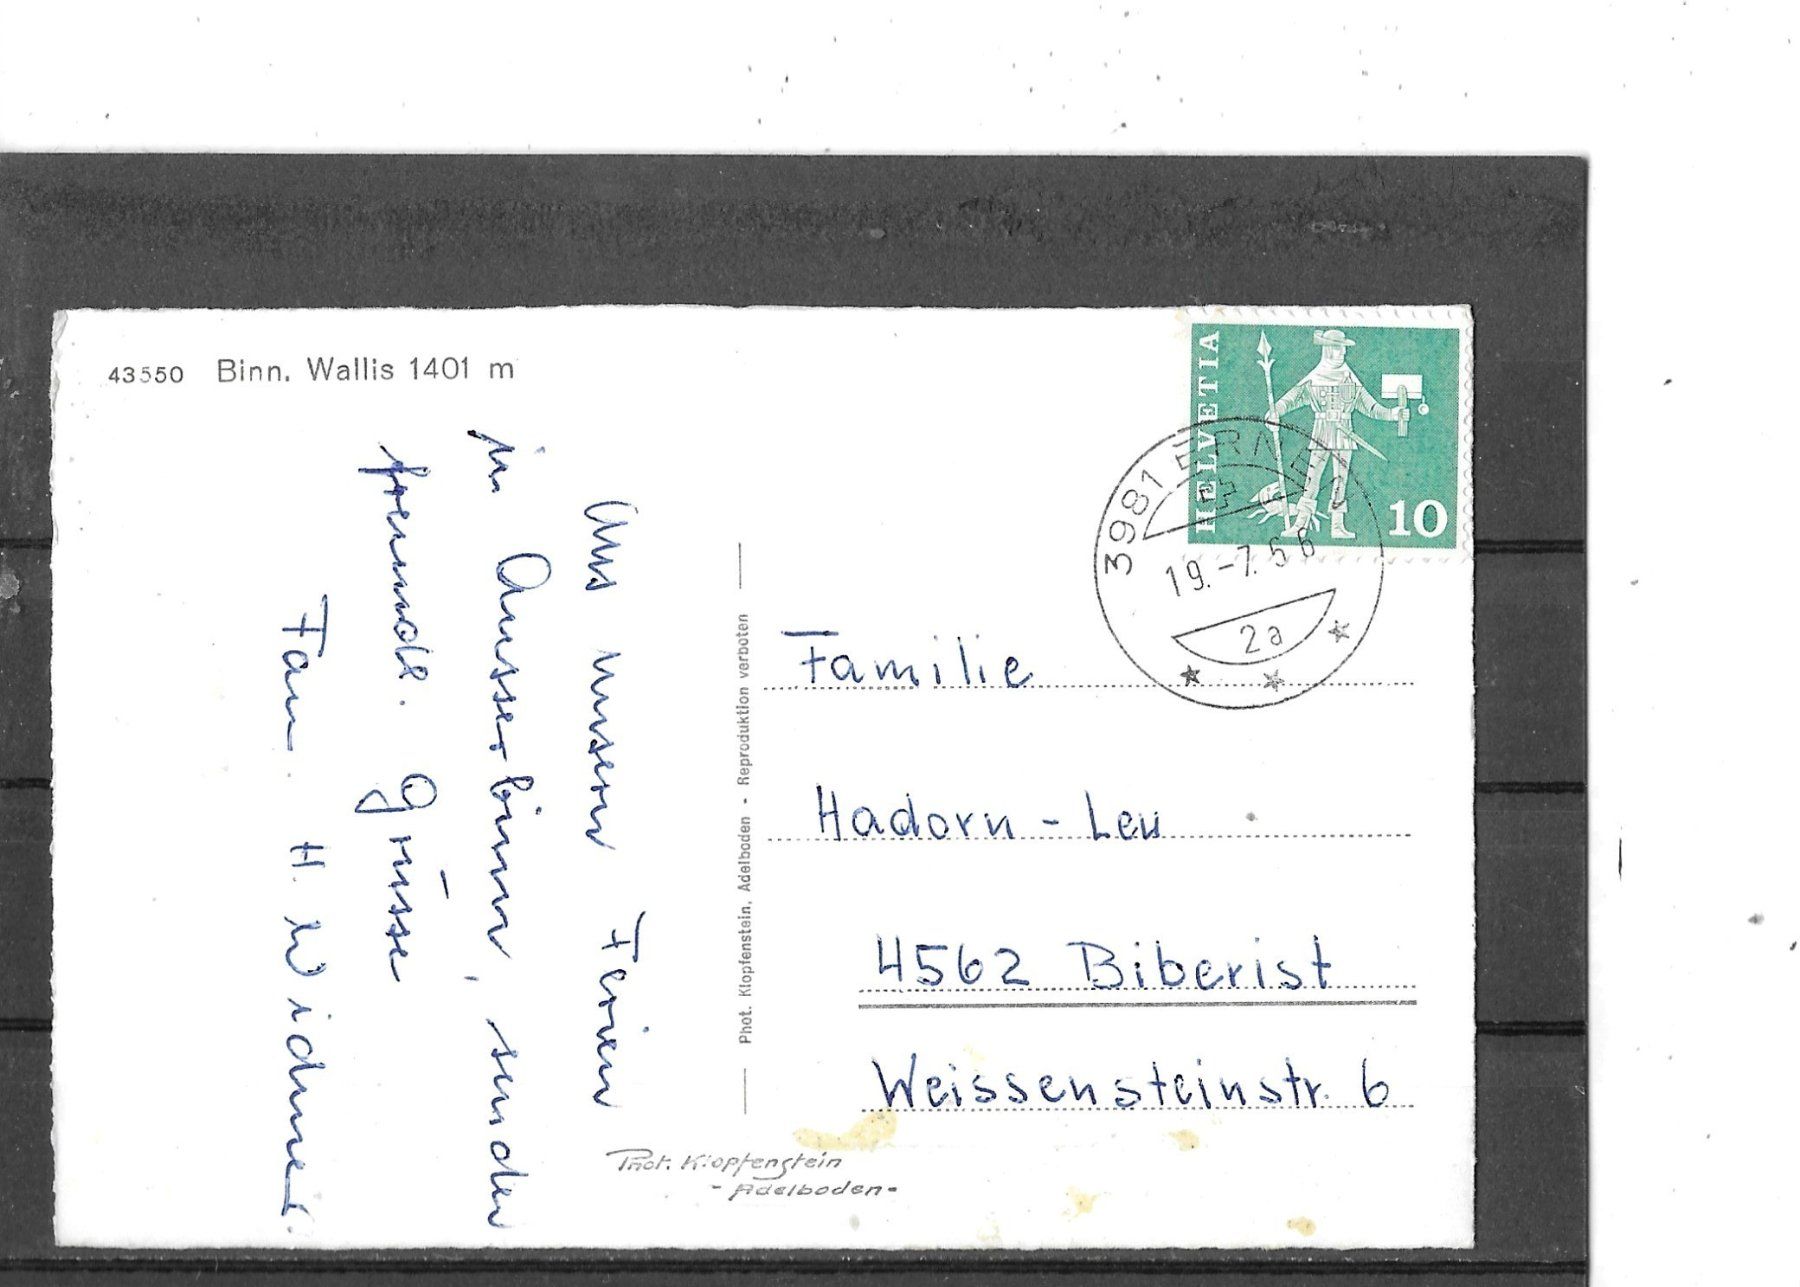 43550 Binn. Wallis 1401 m
Aus unsern Ferien
in Ausserbinn, senden
freundl. Grüsse
Fam. H. Widmer
Phot. Klopfenstein, Adelboden - Reproduktion verboten
Phot. Klopfenstein
- Adelboden -
HELVETIA
10
3981 ERNEN
19.-7.
2a
Familie
Hadorn - Leu
4562 Biberist
Weissensteinstr. 6